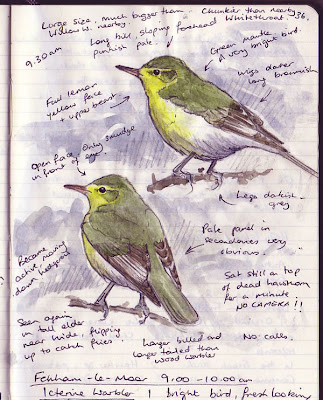 Large size, much bigger than
Willow W. nearby.
Chunkier than nearby
Whitethroat.
36.
9.30am
Long bill, sloping forehead
pinkish pale.
Green mantle
A very bright bird.
Wings darker
long brownish
Full lemon
yellow face
+ upper breast
Open face only smudge
in front of eye.
Legs darkish-
grey
Pale panel in
secondaries very
obvious.
Became
active moving
down hedgerow
Sat still a top
of dead hawthorn
for a minute
NO CAMERA!!
Seen again
in tall elder
near hide, flipping
up to catch flies
Larger billed and
larger tailed than
wood warbler
No calls.
Fenham-le-Moor 9:00-10:00am
Icterine Warbler 1 bright bird, fresh looking